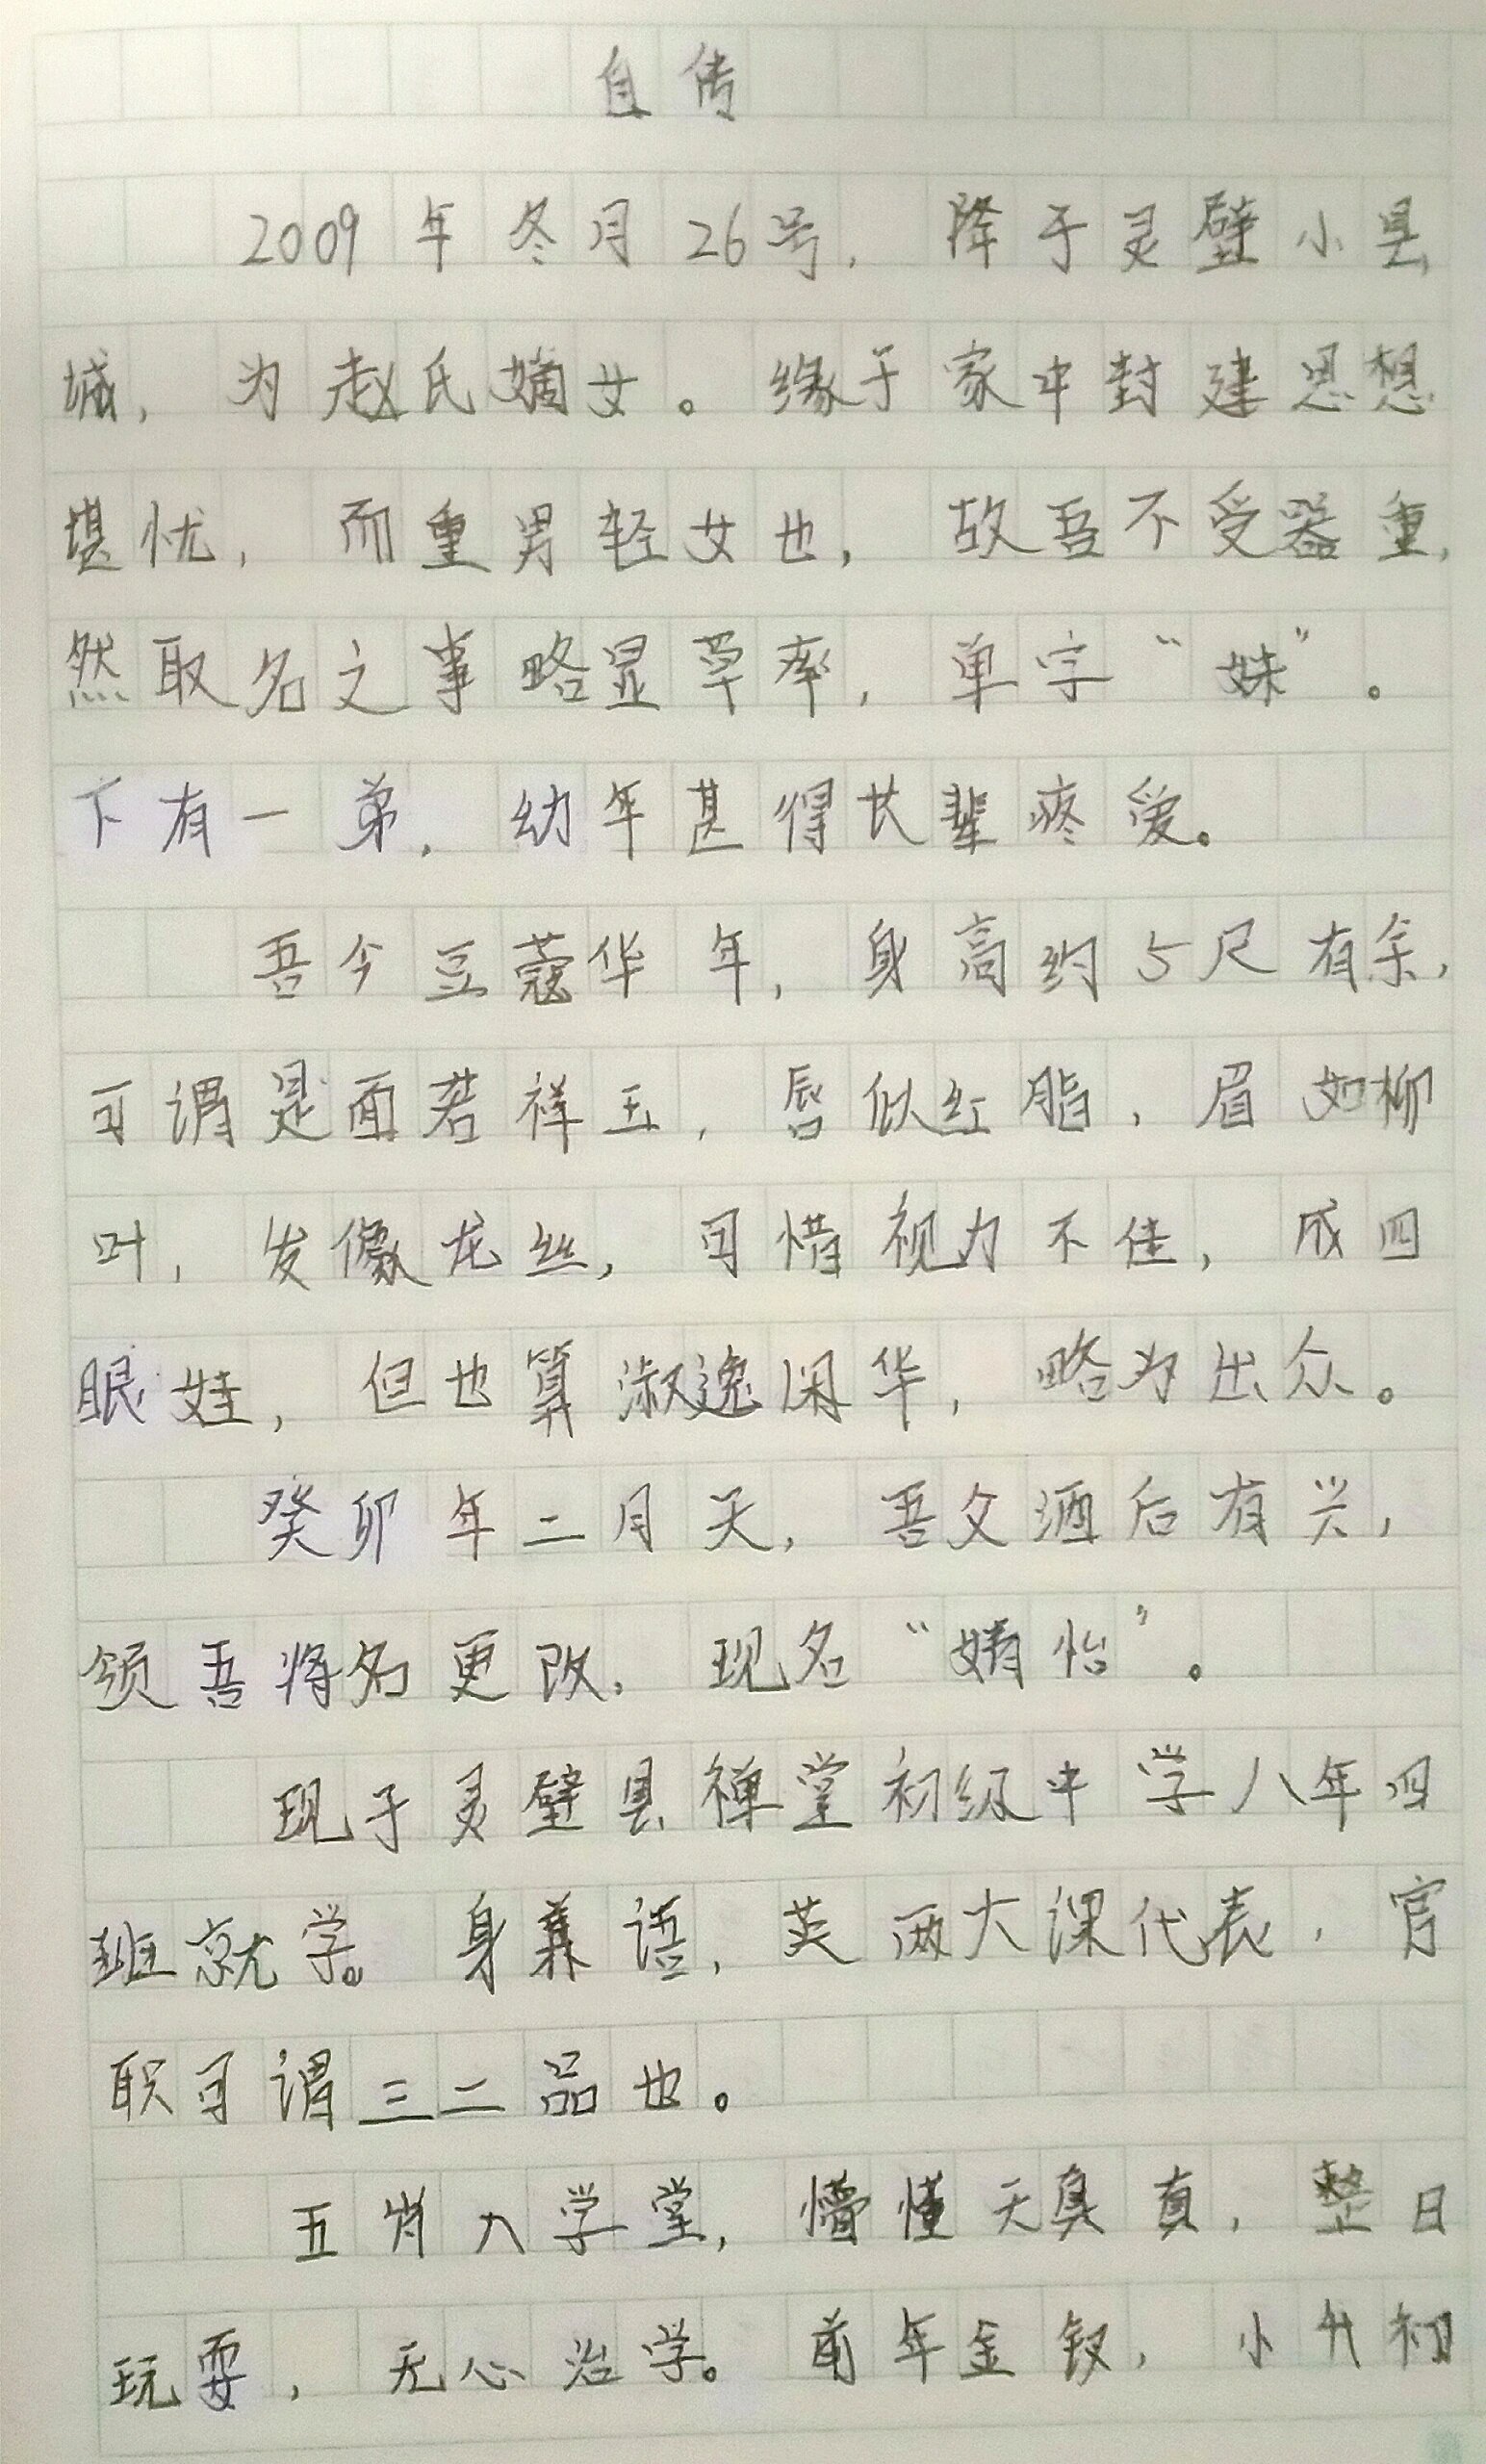 自传
2009年冬月26号，降于灵璧小县
城，为赵氏嫡女。缘于家中封建思想
堪忧，而重男轻女也，故吾不受器重，
然取名之事略显草率，单字“妹”。
下有一弟，幼年甚得长辈疼爱。
吾今豆蔻华年，身高约5尺有余，
可谓是面若祥玉，唇似红脂，眉如柳
叶，发像龙丝，可惜视力不佳，成四
眼娃，但也算淑逸闲华，略为出众。
癸卯年二月天，吾父酒后有兴，
领吾将名更改，现名“婧怡”。
现于灵璧县禅堂初级中学八年四
班就学。身兼语，英两大课代表，官
职可谓三二品也。
五岁入学堂，懵懂天真，整日
玩耍，无心治学。前年金钗，小升初